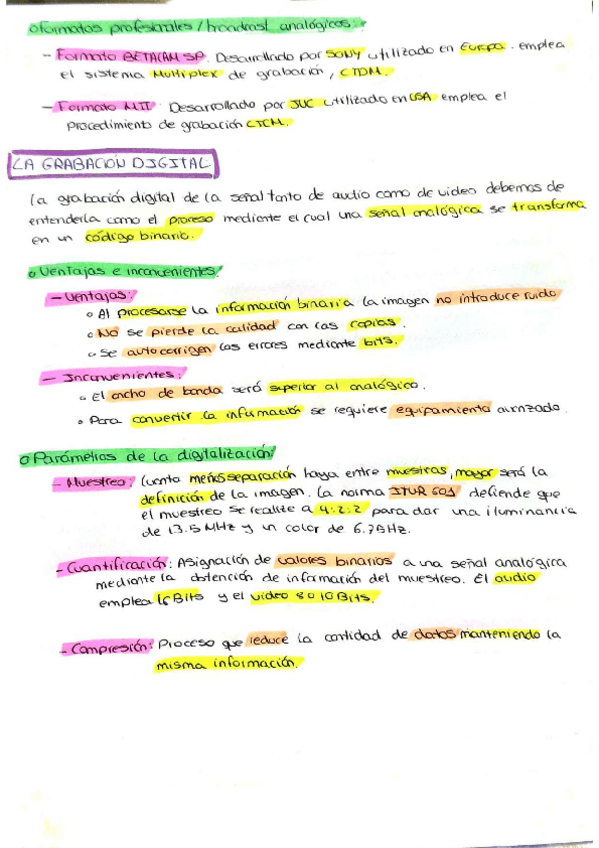 o Formatos profesionales / broadcast analógicos:
- Formato BETACAM SP. Desarrollado por SONY utilizado en Europa. emplea
el sistema Multiplex de grabación, CTDM.
- Formato MII. Desarrollado por JVC utilizado en USA emplea el
procedimiento de grabación CTCM.
LA GRABACIÓN DIGITAL
La grabación digital de la señal tanto de audio como de video debemos de
entenderla como el proceso mediante el cual una señal analógica se transforma
en un código binario.
o Ventajas e inconvenientes:
- Ventajas:
o Al procesarse la información binaria la imagen no introduce ruido
o No se pierde la calidad con las copias.
o Se autocorrigen los errores mediante bits.
- Inconvenientes:
o El ancho de banda será superior al analógico.
o Para convertir la información se requiere equipamiento avanzado.
o Parámetros de la digitalización:
- Muestreo: Cuanta menos separación haya entre muestras, mayor será la
definición de la imagen. La norma ITUR 601 defiende que
el muestreo se realize a 4:2:2 para dar una iluminancia
de 13.5 MHz y un color de 6.75Hz.
- Cuantificación: Asignación de valores binarios a una señal analógica
mediante la obtención de información del muestreo. El audio
emplea 16 Bits y el video 8 o 10 Bits.
- Compresión: Proceso que reduce la cantidad de datos manteniendo la
misma información.